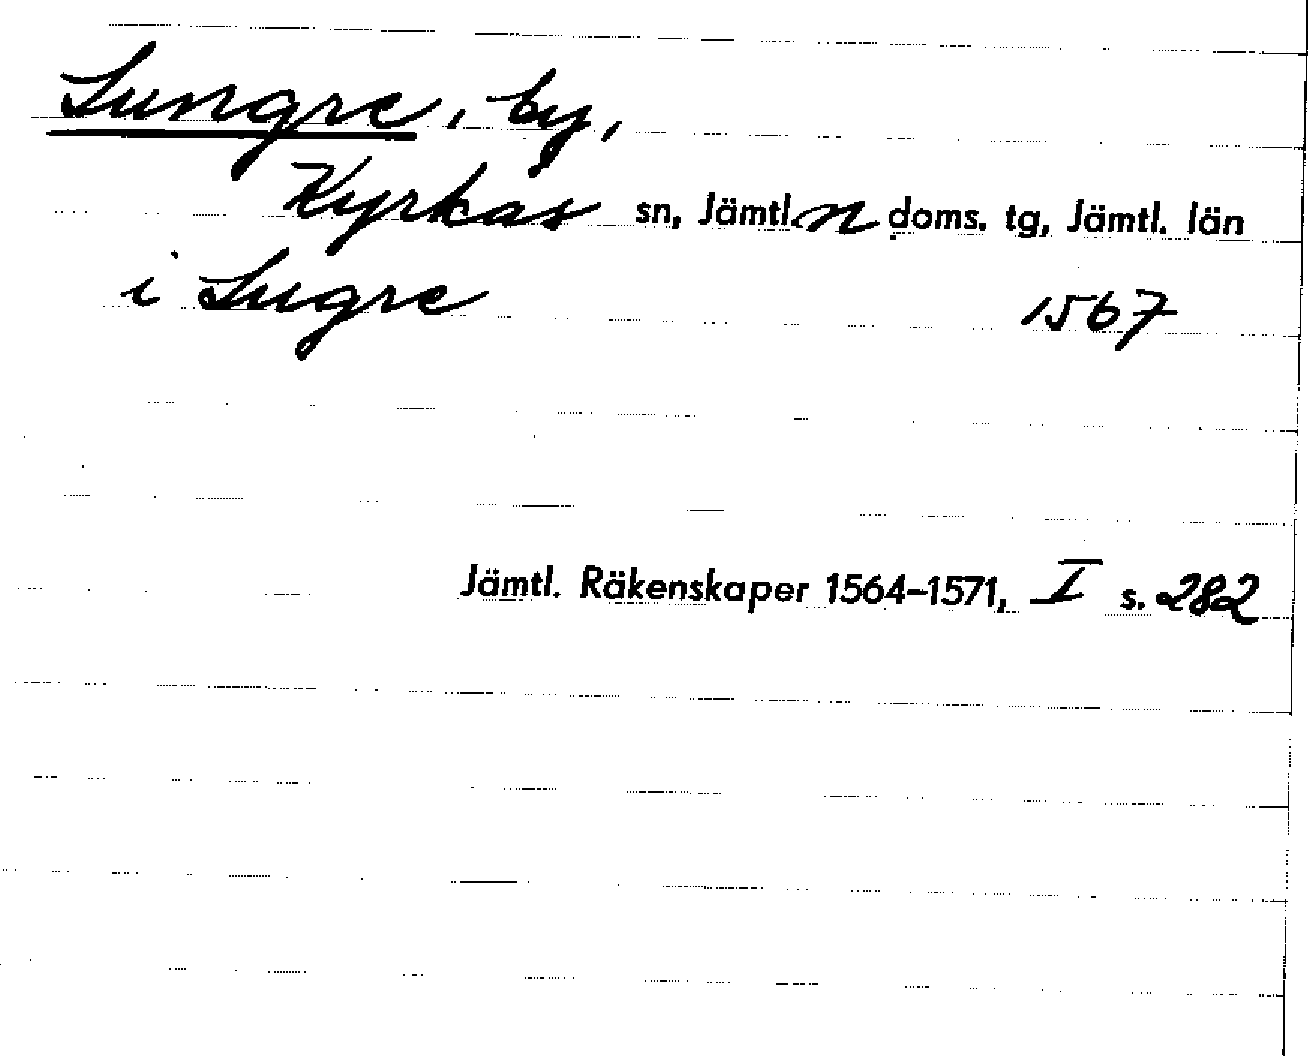 Lungre, by,
Kyrkas sn, Jämtl. n doms. tg, Jämtl. län
i Lugre 1567
Jämtl. Räkenskaper 1564–1571, I s. 282